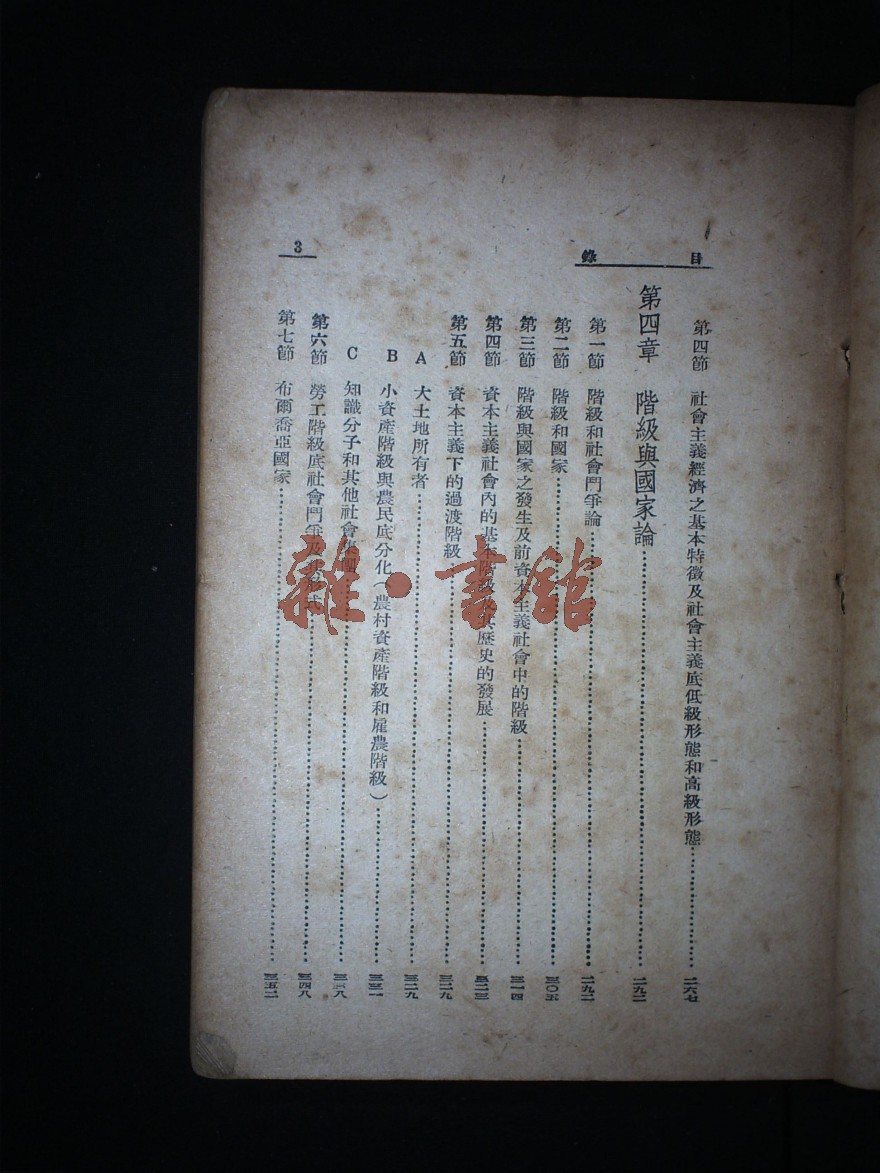 目錄
3
第四節 社會主義經濟之基本特徵及社會主義底低級形態和高級形態 二六七
第四章 階級與國家論 二九二
第一節 階級和社會鬥爭論 二九二
第二節 階級和國家 三〇五
第三節 階級與國家之發生及前資本主義社會中的階級 三一四
第四節 資本主義社會內的基本階級及其歷史的發展 三二三
第五節 資本主義下的過渡階級 三二九
A 大土地所有者 三二九
B 小資產階級與農民底分化（農村資產階級和雇農階級） 三三一
C 知識分子和其他社會集團
第六節 勞工階級底社會鬥爭及其形式 三四八
第七節 布爾喬亞國家 三五二
雜·書館